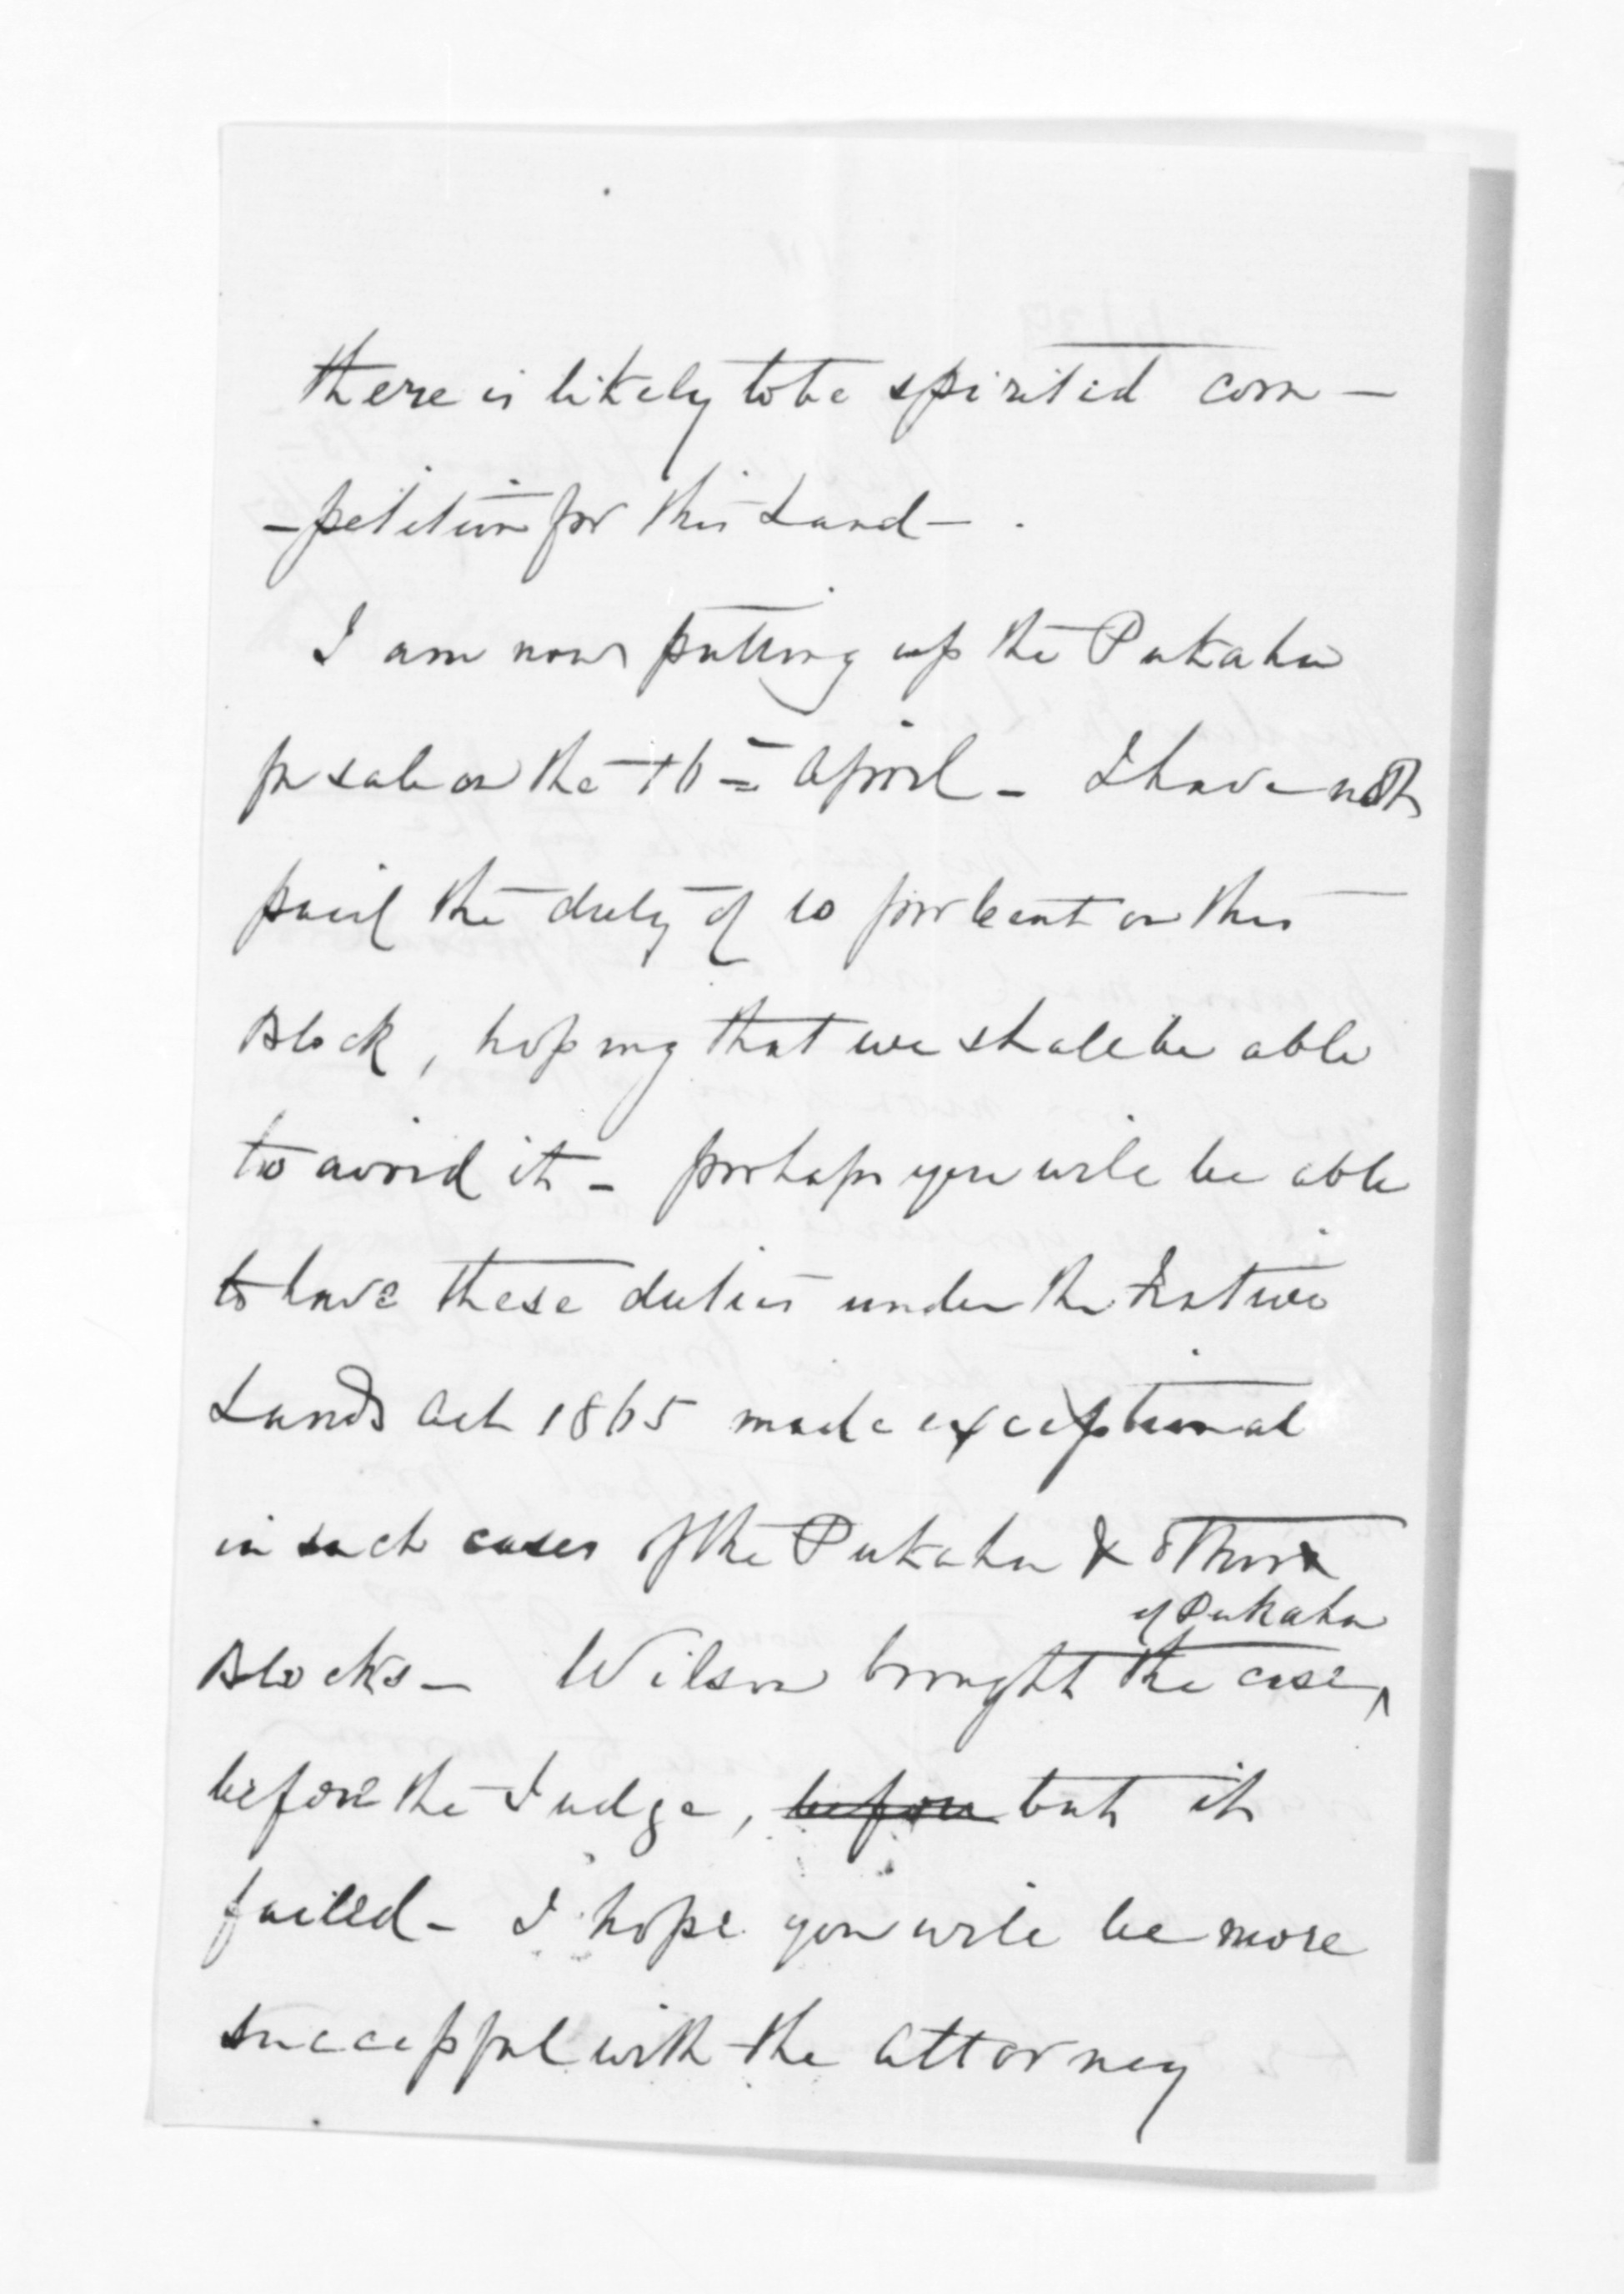 there is likely to be spirited com-
-petition for this Land-.
I am now putting up the Pukahu
for sale on the 16th April - I have not
paid the duty of 10 per Cent on this
Block, hoping that we shall be able
to avoid it - perhaps you will be able
to have these duties under the Native
Lands Act 1865 made exceptional
in such cases of the Pukahu & other
Blocks - Wilson brought the case ^ of Pukahu
before the Judge, before but it
failed - I hope you will be more
successful with the Attorney